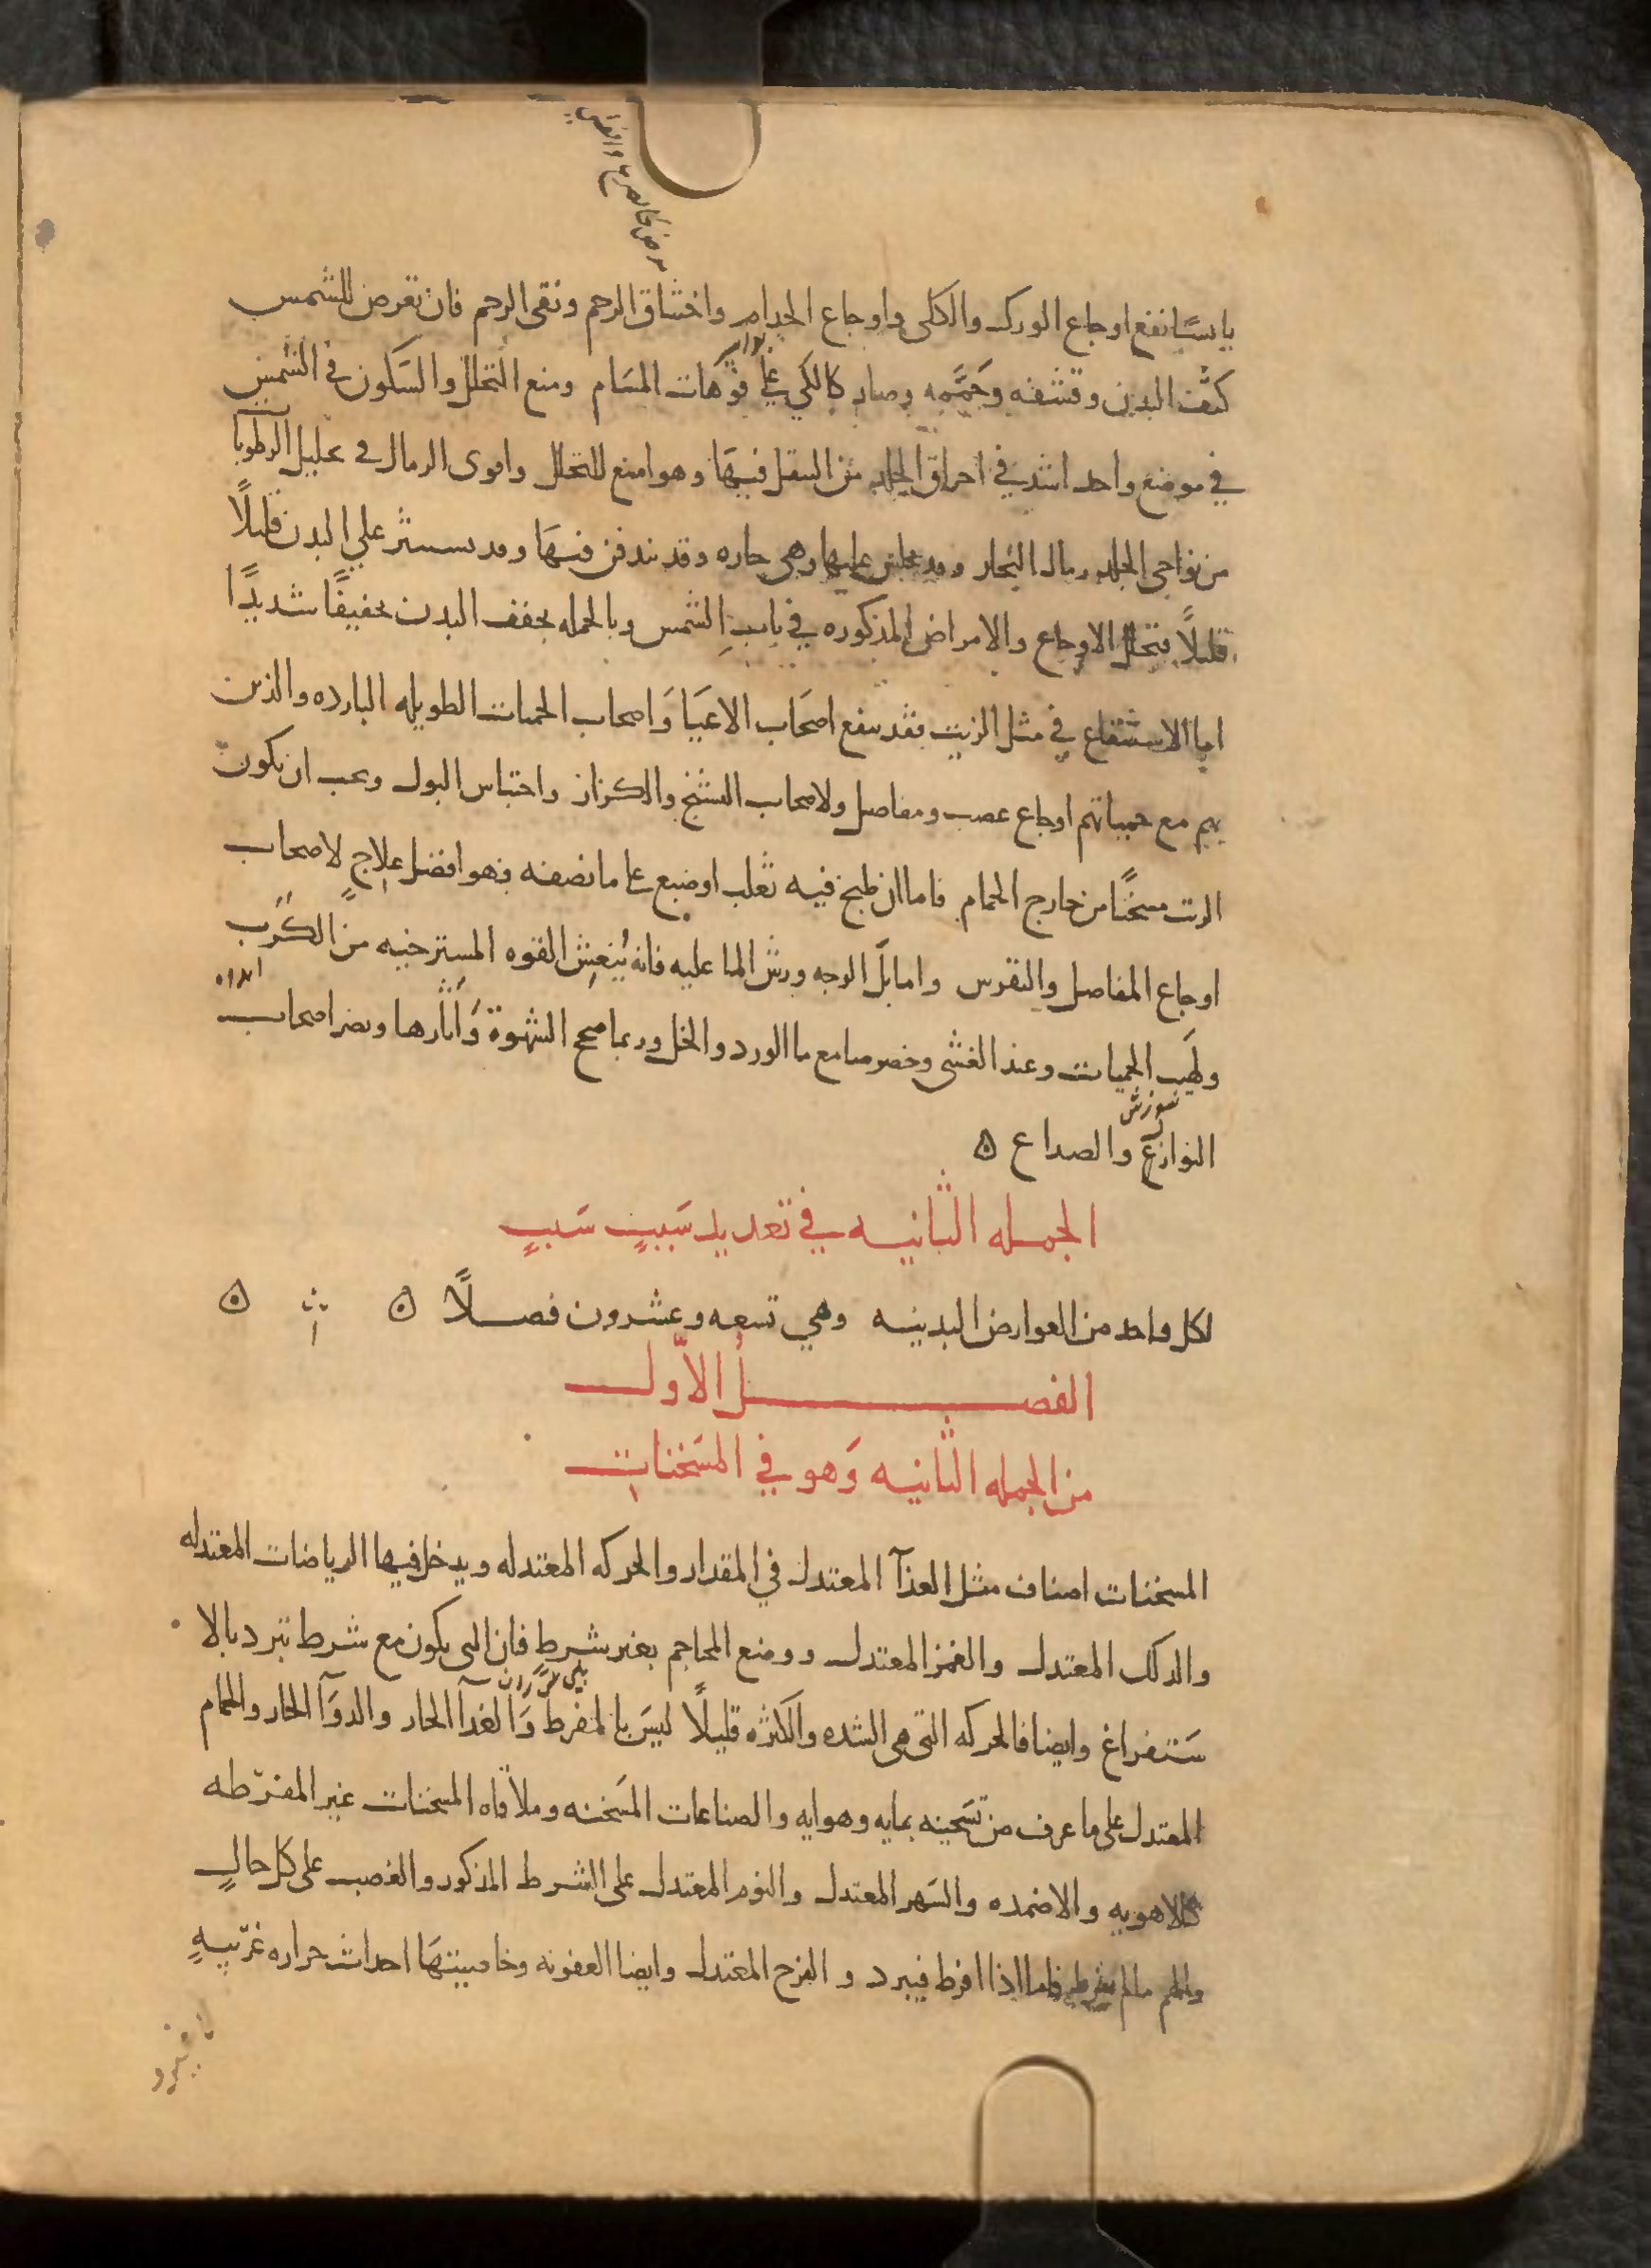 يابسًا نفع اوجاع الورك والكلى واوجاع الجذام واختناق الرحم ونقى الرحم فان تعرض للشمس
كثف البدن وقشفه وحممه وصار كالكي على فوهات المسام ومنع التحلل والسكون في الشمس
في موضع واحد اشد في احراق الجلد من التنقل فيها وهو امنع للتحلل واقوى الرمال في تحليل الرطوبا
من نواحي الجلد رمال البحار وقد يجلس عليها وهي حاره وقد يندفن فيها وقد ينثر على البدن قليلًا
قليلًا فتحلل الاوجاع والامراض المذكوره في باب الشمس وبالجمله يجفف البدن تجفيفًا شديدًا
اما الاستنقاع في مثل الزيت فقد ينفع اصحاب الاعيا واصحاب الحميات الطويله البارده والذين
بهم مع حمياتهم اوجاع عصب ومفاصل ولاصحاب التشنج والكزاز واحتباس البول ويجب ان يكون
الزيت مسخنًا من خارج الحمام فاما ان طبخ فيه ثعلب او ضبع على ما نصفه فهو افضل علاجٍ لاصحاب
اوجاع المفاصل والنقرس واما بلّ الوجه ورش الما عليه فانه يُنعِش القوه المسترخيه من الكَرب
ولهَيب الحميات وعند الغشى وخصوصا مع ما الورد والخل وربما صحح الشهوة وَاثارها ويضر اصحاب
النوازع والصداع ه
الجمله الثانيه في تعديد سَببٍ سَببٍ
لكل واحد من العوارض البدنيه وهي تسعه وعشرون فصلًا ه ه
الفصل الاوّل
من الجمله الثانيه وَهو في المسَخنات
المسخنات اصناف مثل الغذآ المعتدل في المقدار والحركه المعتدله ويدخل فيها الرياضات المعتدله
والدلك المعتدل والغمز المعتدل ووضع المحاجم بغير شرط فان التى يكون مع شرط تبرد بالا
سَتفراغ وايضا فالحركه التى هى الشده والكثره قليلًا ليسَ بالمفرط وَالغذآ الحار والدوَآ الحار والحمام
المعتدل على ما عرف من تسَخينه بمايه وهوايه والصناعات المسَخنه وملاقاه المسخنات غير المفرّطه
كالاهويه والاضمده والسَهر المعتدل والنوم المعتدل على الشرط المذكور والغضب على كل حالٍ
والهم ما لم يفرط فاما اذا افرط فيبرد و الفرح المعتدل وايضا العفونه وخاصيتهَا احداث حراره غرّيبهٍ